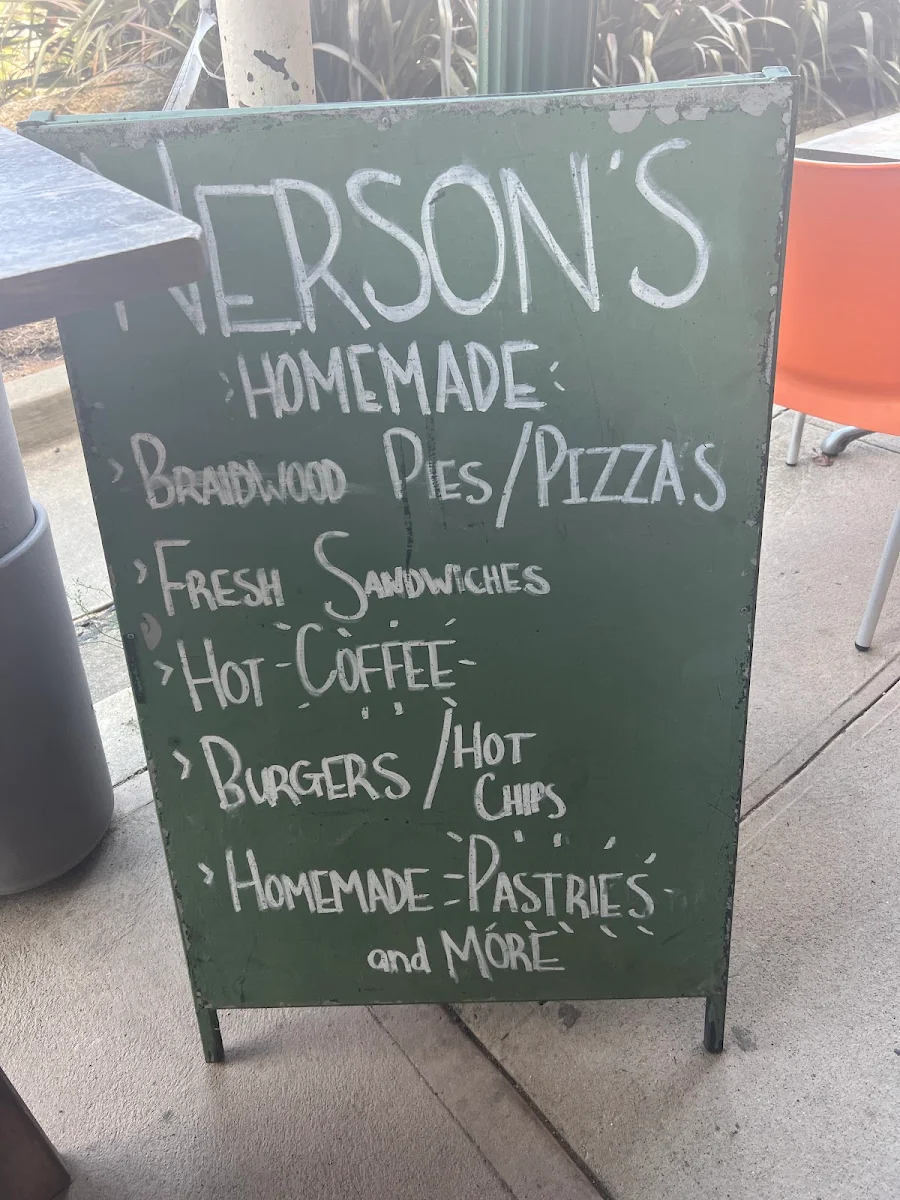 NERSON'S
HOMEMADE
> BRAIDWOOD PIES/PIZZAS
> FRESH SANDWICHES
> HOT COFFEE
> BURGERS / HOT
CHIPS
> HOMEMADE PASTRIES
and MORE